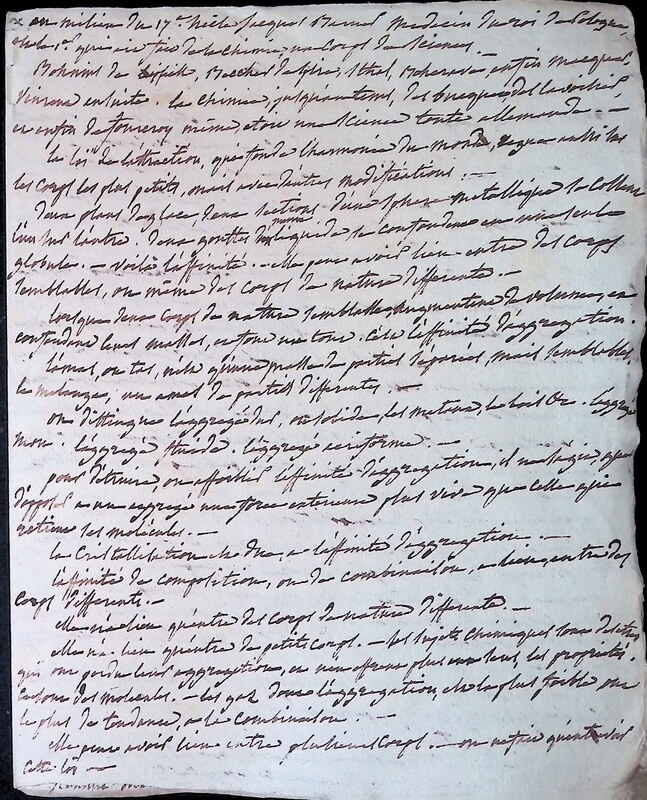 au milieu du 17e siècle jacques Barner medecin du roi de Pologne
est le 1er qui ait fait de la chimie un Corps de sciences. —
Bohnius de Leipsik, Beccher de Spire, Sthal, Boherave, enfin macquer,
vinrent ensuite. la chimie, jusqu'au tems, de bucquet, de lavoisier,
et enfin de fourcroy même, etoit une science toute allemande. —
la loi de l'attraction, qui fonde l'harmonie du monde, regne aussi sur
les corps les plus petits, mais avec d'autres modifications. —
deux plans de glace, deux sections d'une sphere metallique se collent
l'un sur l'autre. deux gouttes de liquide se confondent en une seule
globule. — voilà l'affinité. — elle peut avoir lieu entre des corps
semblables, ou même des corps de nature differente. —
lorsque deux corps de nature semblable augmentent de volume, en
confondant leurs masses, et font un tout. C'est l'affinité d'aggregation.
l'amas, ou tas, n'est qu'une masse de parties séparées, mais semblables.
le melange, un amas de parties differentes. —
on distingue l'aggregé dur, ou solide, les metaux, le bois &c. l'aggregé
mou. l'aggregé fluide. l'aggregé aeriforme. —
pour détruire, ou affoiblir l'affinité d'aggregation, il ne s'agit, que
d'opposer a un aggregé une force exterieure plus vive que celle qui
retient ses molécules. —
la Cristallisation est due a l'affinité d'aggregation. —
l'affinité de composition, ou de combinaison, a lieu, entre des
corps differents. —
elle n'a lieu qu'entre des corps de nature differente. —
elle n'a lieu qu'entre de petits corps. — les sujets chimiques sont des êtres
qui ont perdu leur aggregation, et n'en offrent plus les proprietés.
Ce sont des molecules. — les gaz dont l'aggregation est la plus foible ont
le plus de tendance, a la combinaison. —
elle peut avoir lieu entre plusieurs corps. — on ne fait qu'entrevoir
cette loi —